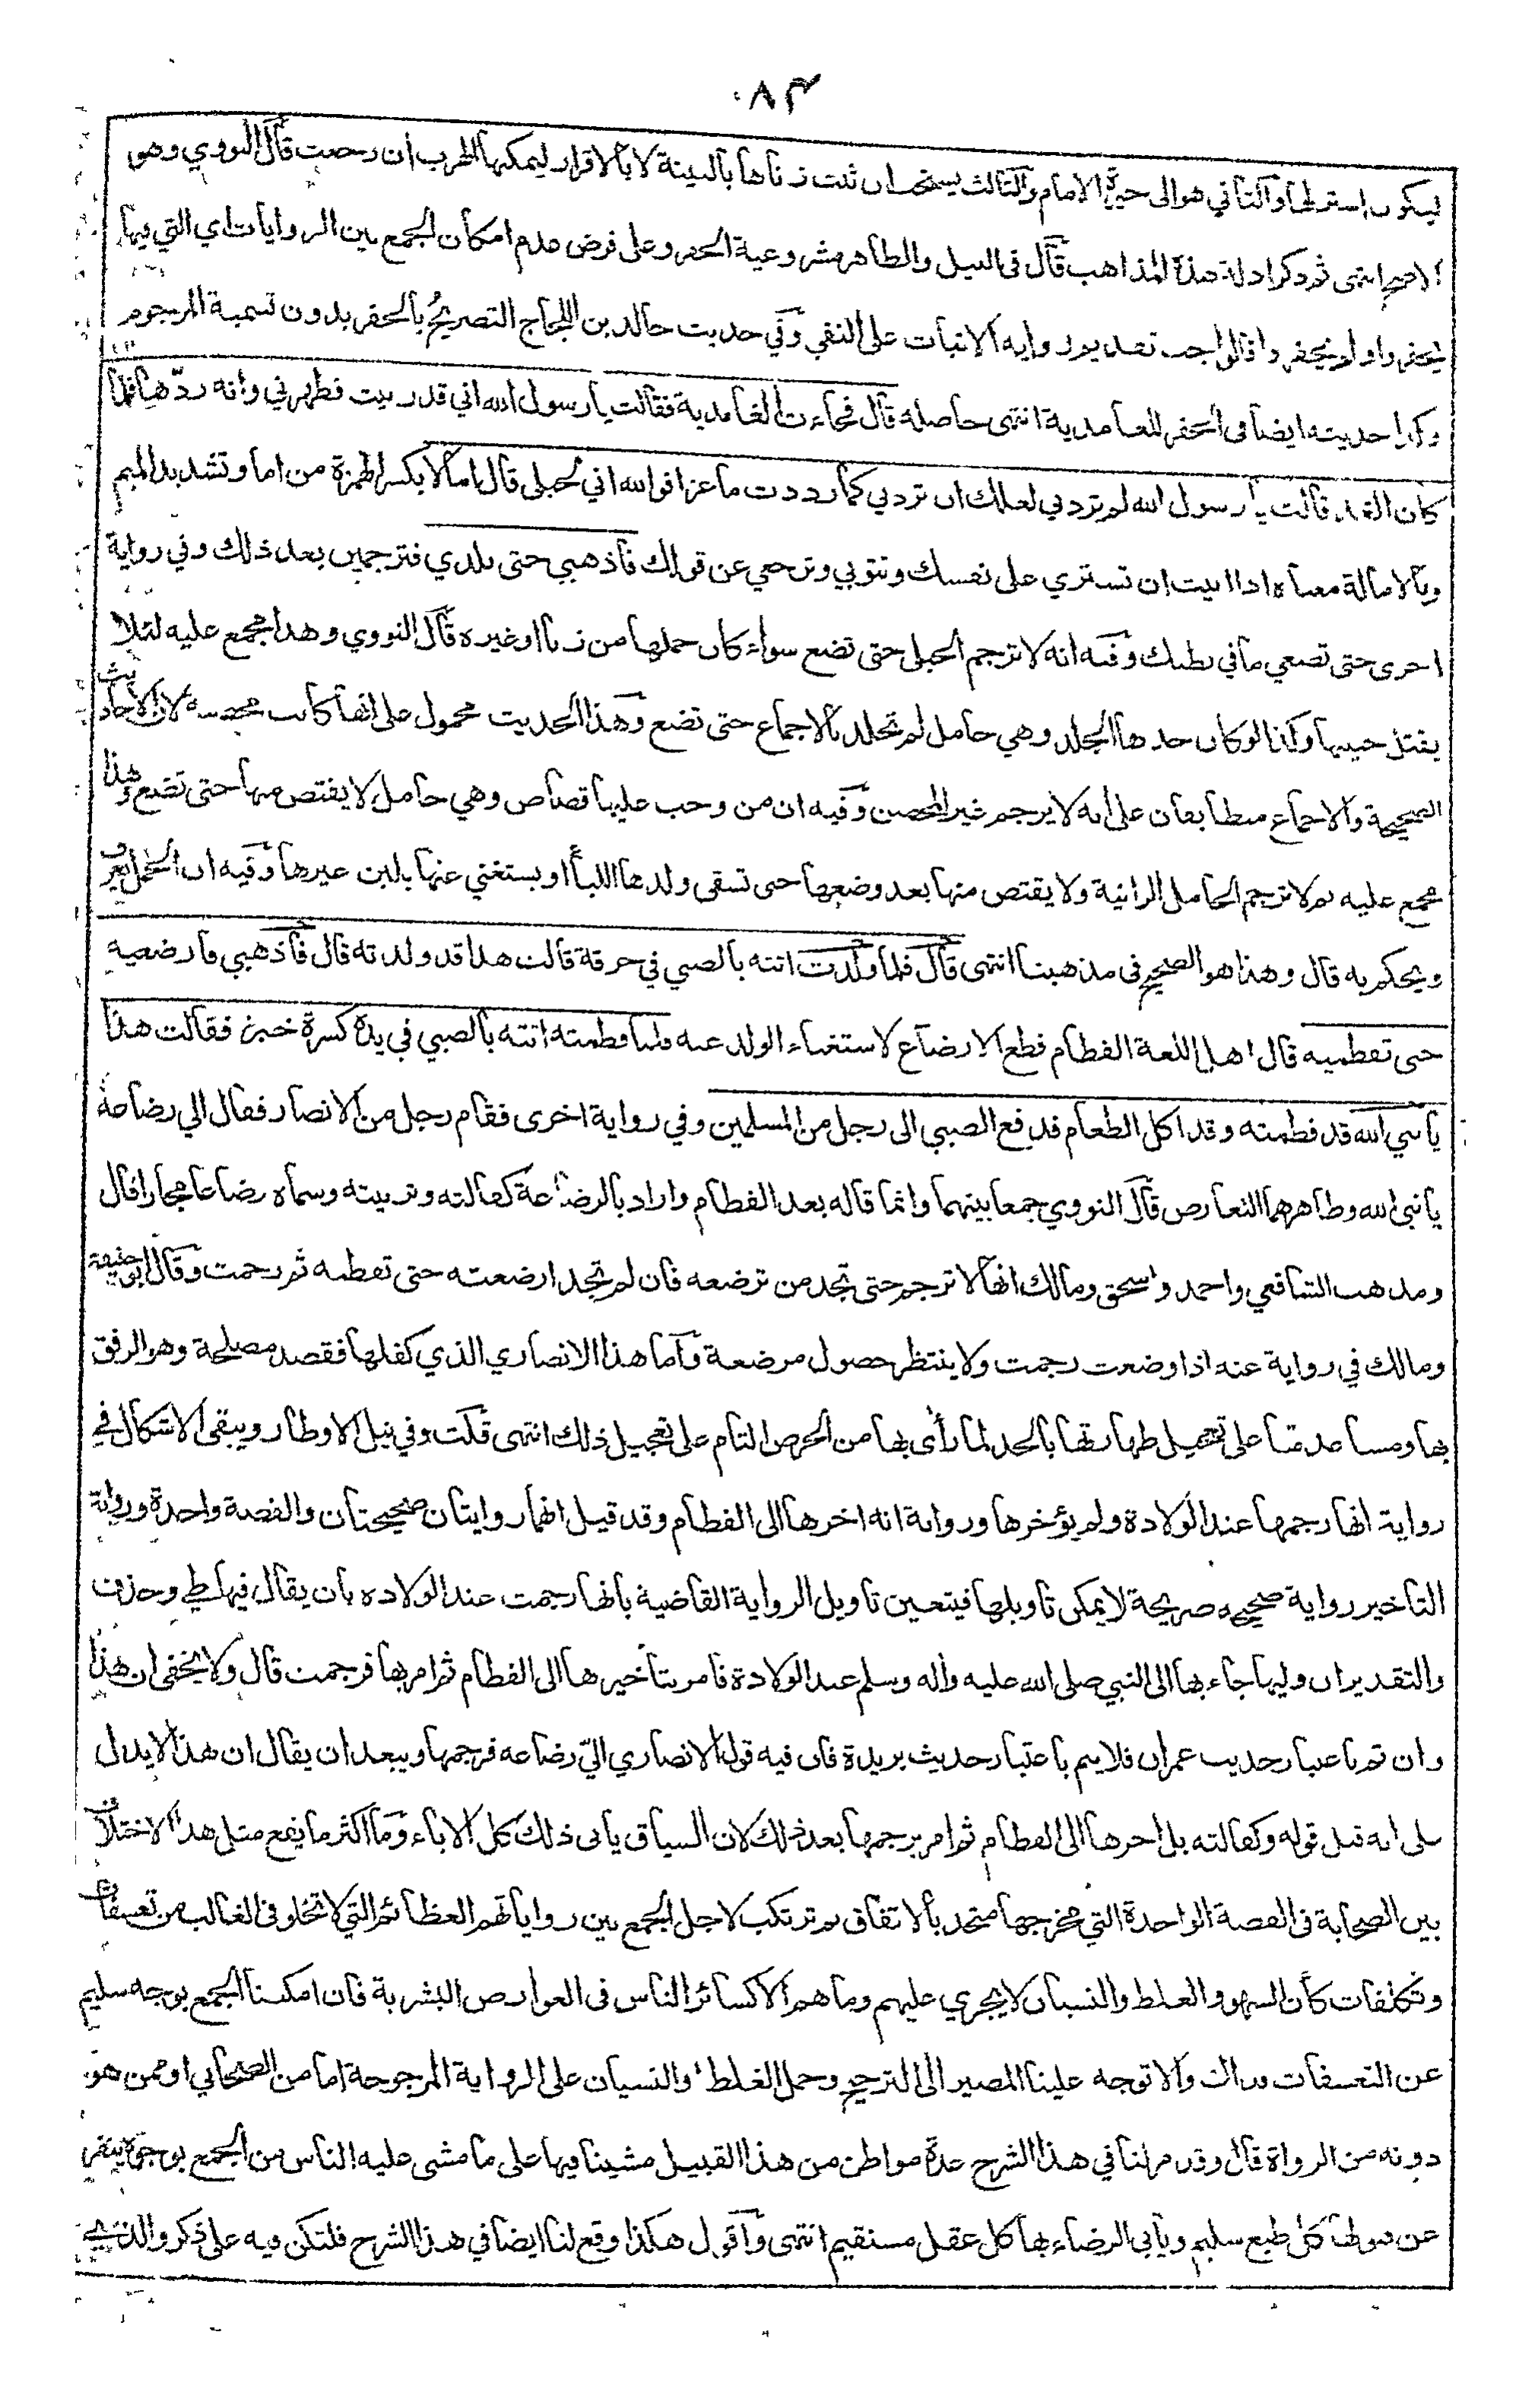 ٠٨٣
ليكون استر لها والثاني هو الى خيرة الامام والثالث يستحب ان ثبت زناها بالبينة لا بالاقرار ليمكنها الهرب ان رجعت قال النووي وهو
الاصح انتهى ثم ذكر ادلة هذه المذاهب قال في النيل والظاهر مشروعية الحفر وعلى فرض عدم امكان الجمع بين الروايات اي التي فيها
يحفر واو لم يحفر واقالواجب تقديم رواية الاثبات على النفي وفي حديث خالد بن اللجلاج التصريح بالحفر بدون تسمية المرجوم
وكذا حديثه ايضا في الحفر للغامدية انتهى حاصله قال فجاءت الغامدية فقالت يا رسول الله اني قد زنيت فطهرني وانه ردها فلما
كان الغد قالت يا رسول الله لم تردني لعلك ان تردني كما رددت ماعزا فوالله اني لحبلى قال اما لا بكسر الهمزة من اما وتشديد الميم
وبالامالة معناه اذا ابيت ان تستري على نفسك وتتوبي وترجعي عن قولك فاذهبي حتى تلدي فترجمين بعد ذلك وفي رواية
اخرى حتى تضعي ما في بطنك وفيه انه لا ترجم الحبلى حتى تضع سواء كان حملها من زنا او غيره قال النووي وهذا مجمع عليه لئلا
يقتل جنينها وكذا لو كان حدها الجلد وهي حامل لم تجلد بالاجماع حتى تضع وهذا الحديث محمول على انها كانت محصنة لان الاحاديث
الصحيحة والاجماع متطابقان على انه لا يرجم غير المحصن وفيه ان من وجب عليها قصاص وهي حامل لا يقتص منها حتى تضع وهذا
مجمع عليه ثم لا ترجم الحامل الزانية ولا يقتص منها بعد وضعها حتى تسقى ولدها اللبأ او يستغني عنها بلبن غيرها وفيه ان الحمل يعرف
ويحكم به قال وهذا هو الصحيح في مذهبنا انتهى قال فلما ولدت اتته بالصبي في خرقة قالت هذا قد ولدته قال فاذهبي فارضعيه
حتى تفطميه قال اهل اللغة الفطام قطع الارضاع لاستغناء الولد عنه فلما فطمته اتته بالصبي في يده كسرة خبز فقالت هذا
يا نبي الله قد فطمته وقد اكل الطعام فدفع الصبي الى رجل من المسلمين وفي رواية اخرى فقام رجل من الانصار فقال الي رضاعه
يا نبي الله وظاهرهما التعارض قال النووي جمعا بينهما وانما قاله بعد الفطام واراد بالرضاعة كفالته وتربيته وسماه رضاعا مجازا قال
ومذهب الشافعي واحمد واسحق ومالك انها لا ترجم حتى تجد من ترضعه فان لم تجد ارضعته حتى تفطمه ثم رجمت وقال ابو حنيفة
ومالك في رواية عنه اذا وضعت رجمت ولا ينتظر حصول مرضعة واما هذا الانصاري الذي كفلها فقصد مصلحة وهو الرفق
بها ومساعدتها على تعجيل طهارتها بالحد لما رأى بها من الحرص التام على تعجيل ذلك انتهى قلت وفي نيل الاوطار ويبقى الاشكال في
رواية انها رجمها عند الولادة ولم يؤخرها ورواية انه اخرها الى الفطام وقد قيل انهما روايتان صحيحتان والقصة واحدة ورواية
التاخير رواية صحيحة صريحة لا يمكن تاويلها فيتعين تاويل الرواية القاضية بانها رجمت عند الولادة بان يقال فيها طي وحذف
والتقدير ان وليها جاء بها الى النبي صلى الله عليه واله وسلم عند الولادة فامر بتأخيرها الى الفطام ثم امر بها فرجمت قال ولا يخفى ان هذا
وان تم باعتبار حديث عمران فلا يتم باعتبار حديث بريدة فان فيه قول الانصاري اليّ رضاعه فرجمها ويبعد ان يقال ان هذا لا يدل
على انه قبل قوله وكفالته بل اخرها الى الفطام ثم امر برجمها بعد ذلك لان السياق يأبى ذلك كل الاباء وما اكثر ما يقع مثل هذا الاختلاف
بين الصحابة في القصة الواحدة التي مخرجها متحد بالاتفاق ثم ترتكب لاجل الجمع بين رواياتهم العظائم التي لا تخلو في الغالب من تعسفات
وتكلفات كأن السهو والغلط والنسيان لا يجري عليهم وما هم الا كسائر الناس في العوارض البشرية فان امكننا الجمع بوجه سليم
عن التعسفات فذاك والا توجه علينا المصير الى الترجيح وحمل الغلط والنسيان على الرواية المرجوحة اما من الصحابي او ممن هو
دونه من الرواة قال وقد مر لنا في هذا الشرح عدة مواطن من هذا القبيل مشينا فيها على ما مشى عليه الناس من الجمع بوجوه ينفر
عن قبولها كل طبع سليم ويأبى الرضاء بها كل عقل مستقيم انتهى واقول هكذا وقع لنا ايضا في هذا الشرح فلتكن فيه على ذكر والذي